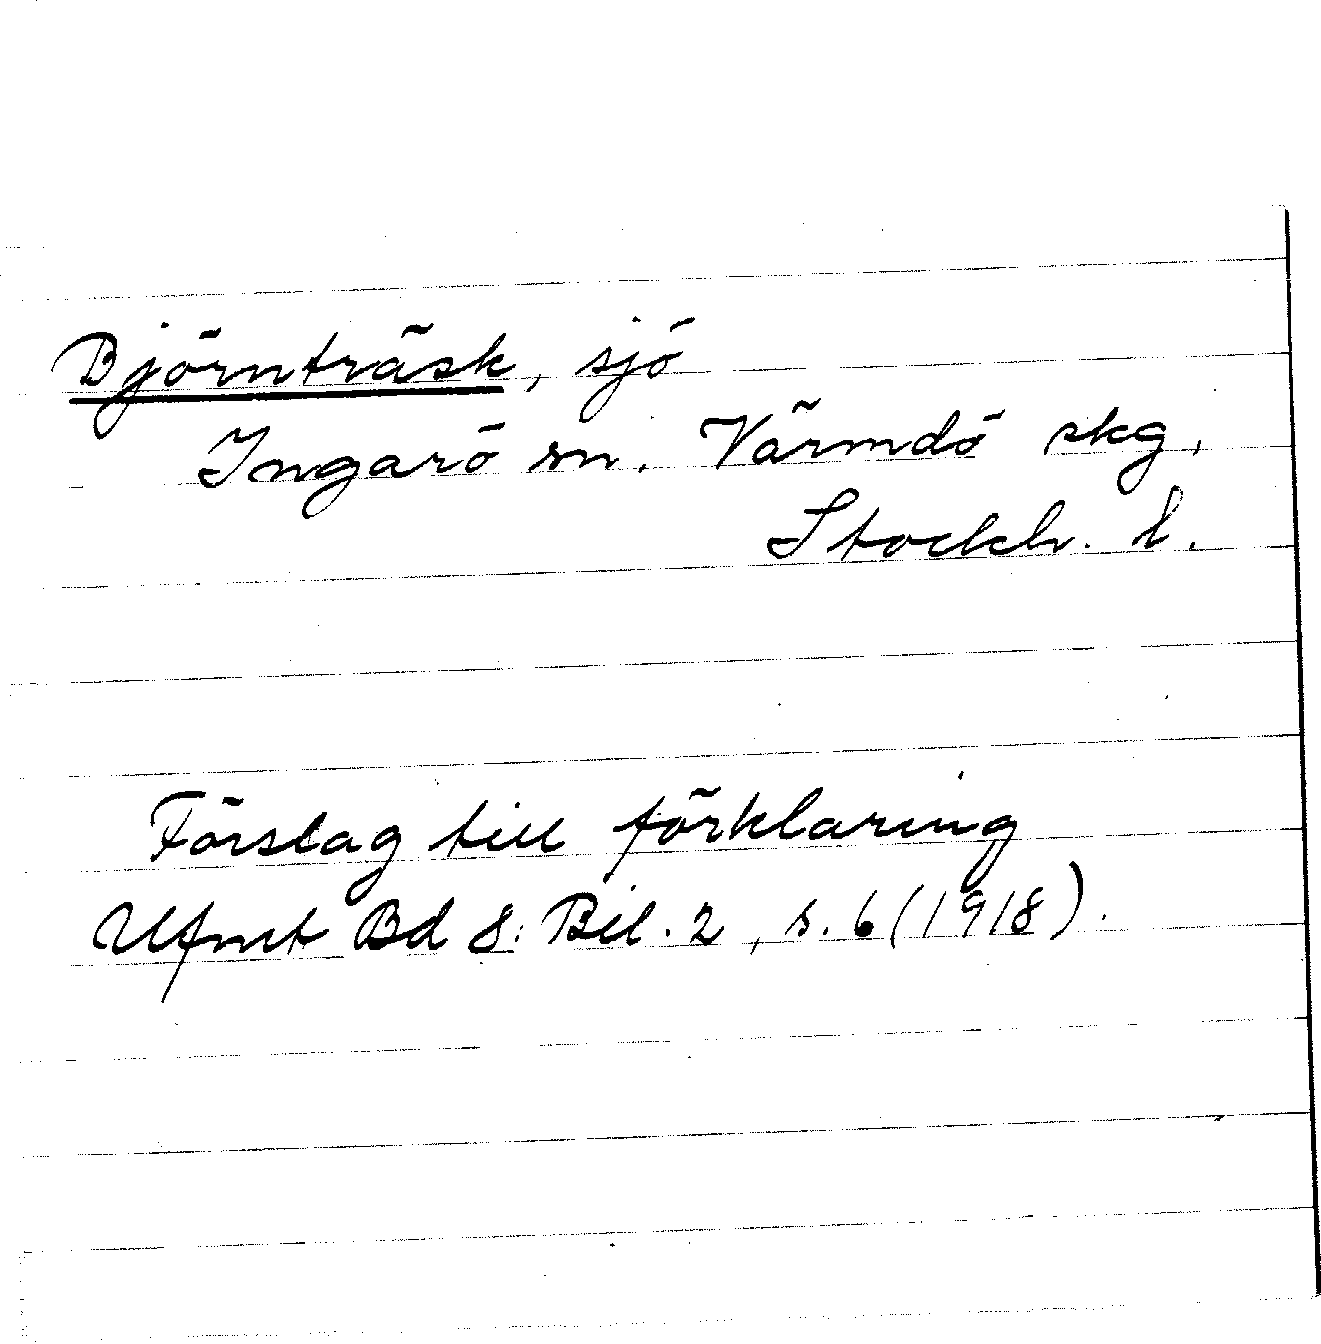 Björnträsk, sjö
Ingarö sn. Värmdö skg,
Stockh. l.
Förslag till förklaring
Ufmt Bd 8: Bil. 2, s. 6 (1918).